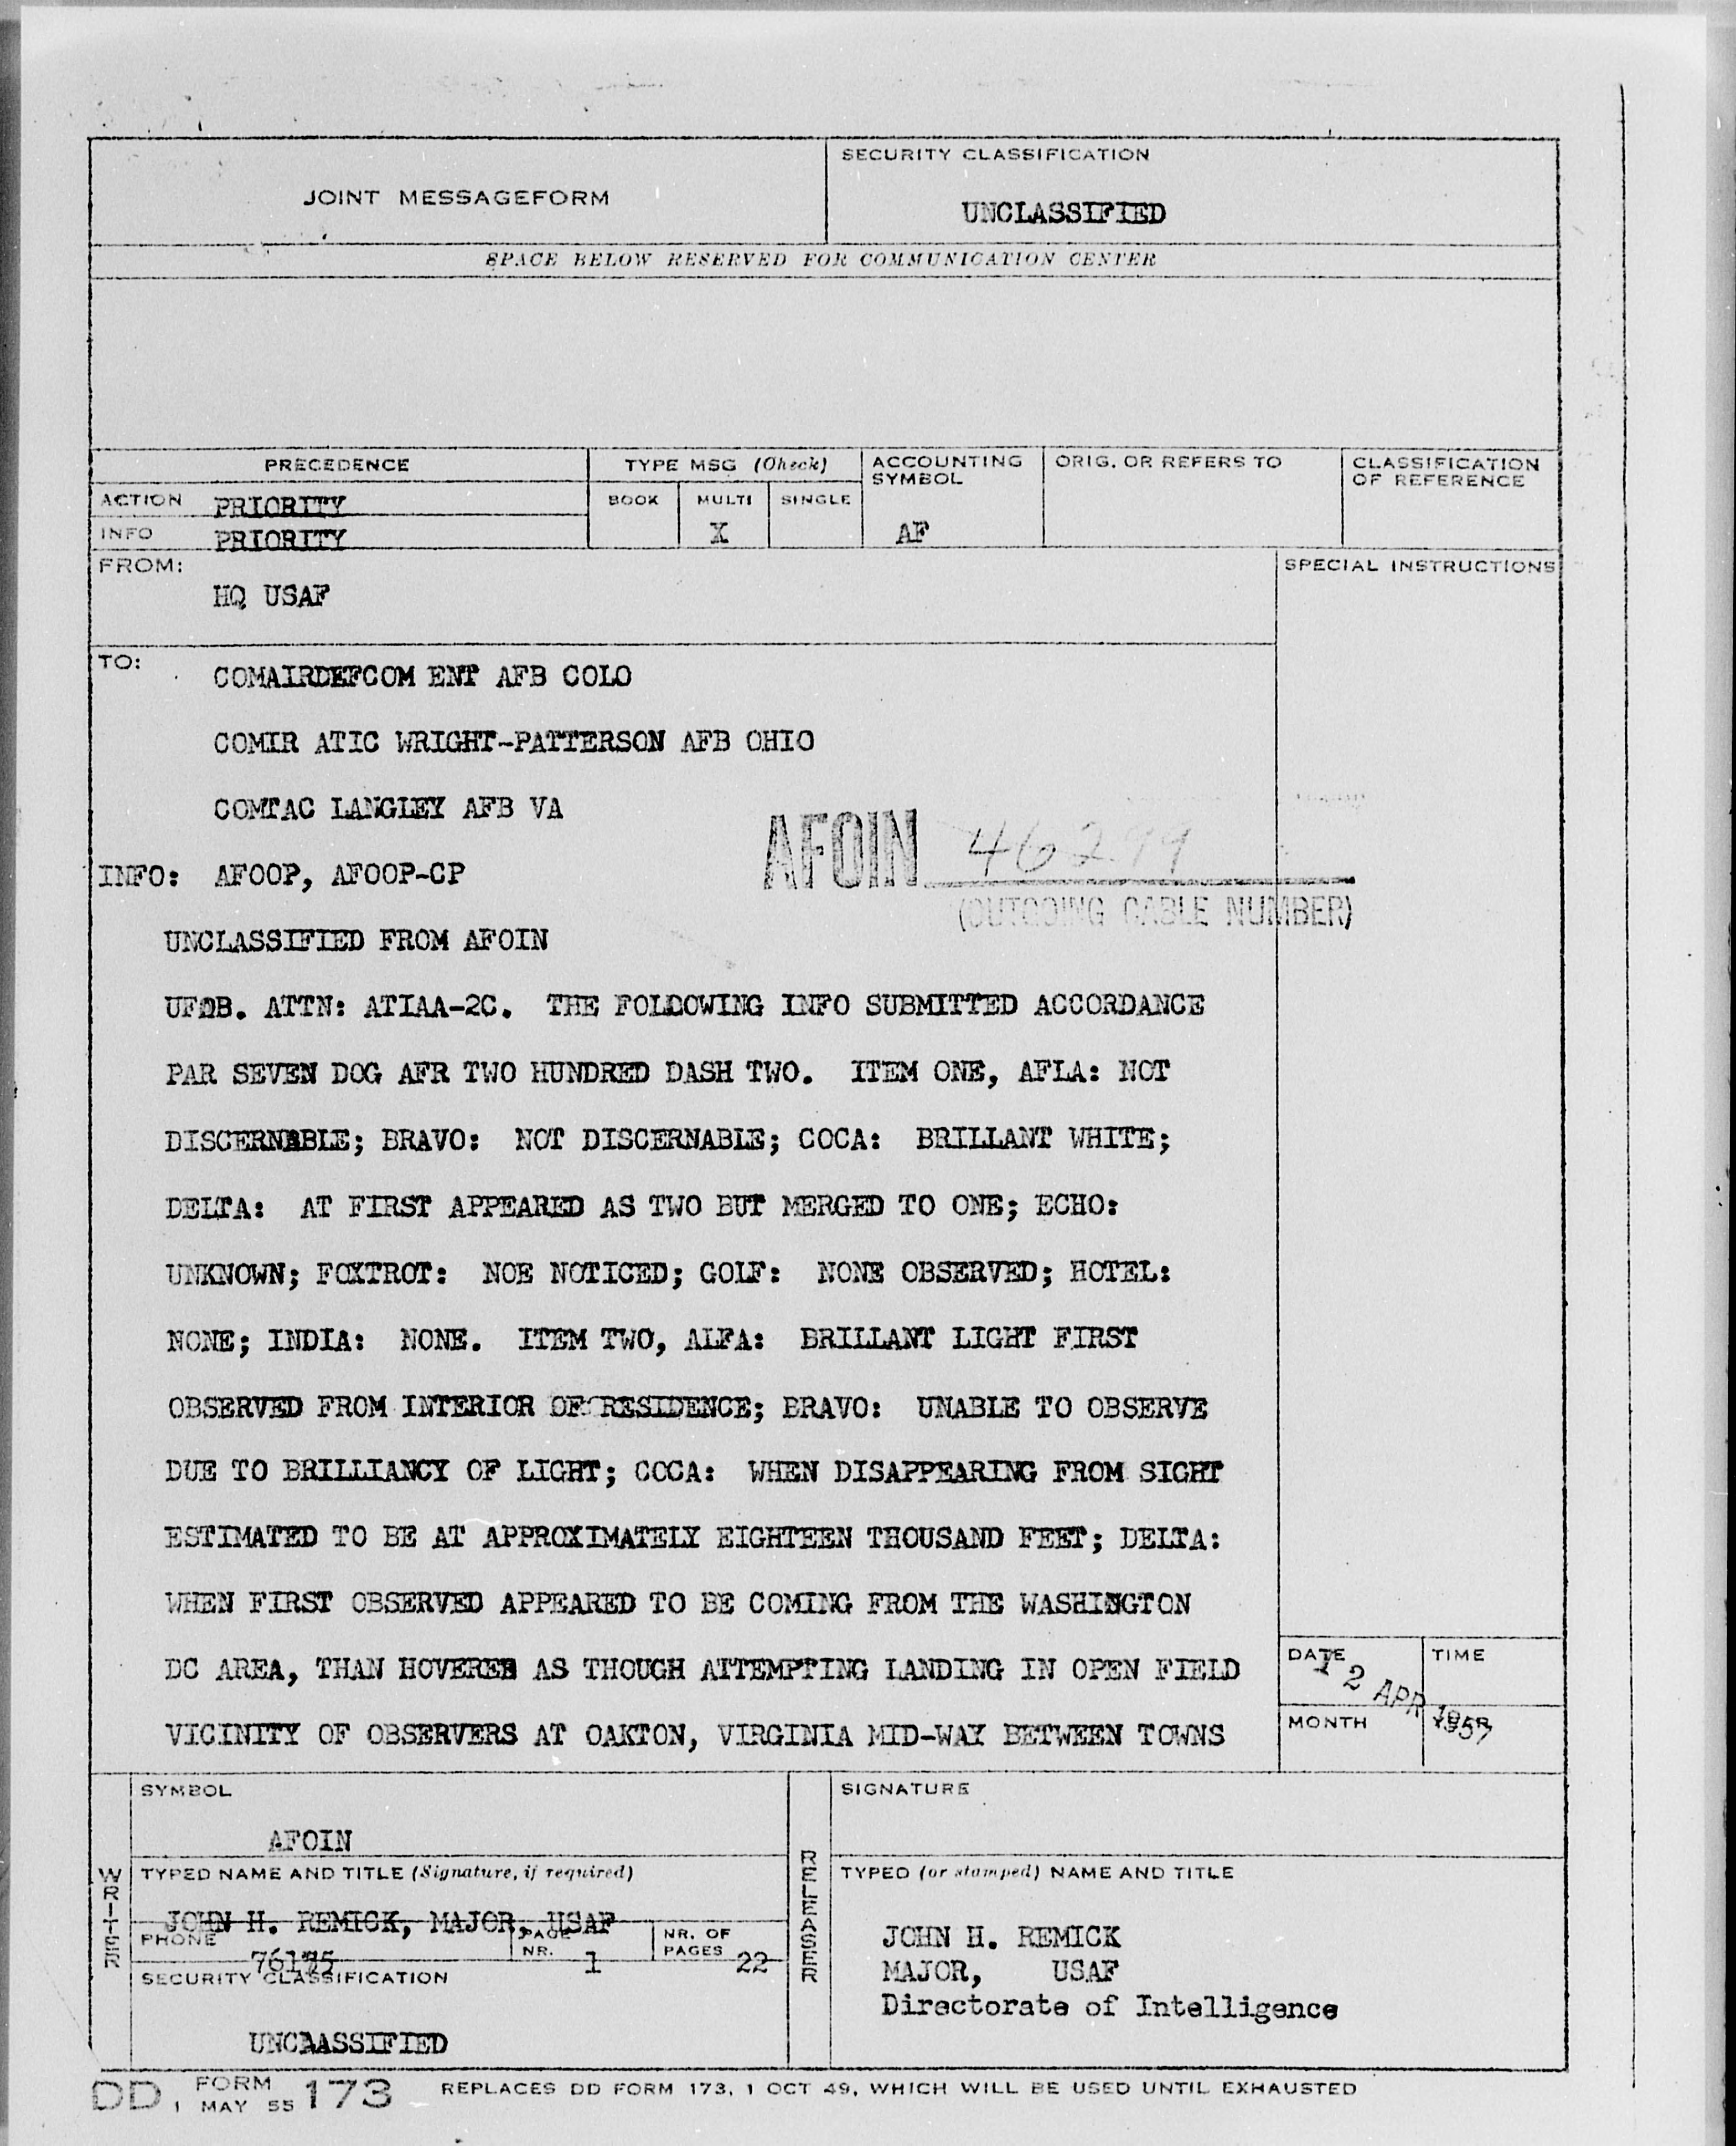 JOINT MESSAGEFORM
SECURITY CLASSIFICATION
UNCLASSIFIED
SPACE BELOW RESERVED FOR COMMUNICATION CENTER
PRECEDENCE
TYPE MSG (Check)
ACCOUNTING SYMBOL
ORIG. OR REFERS TO
CLASSIFICATION OF REFERENCE
ACTION PRIORITY
BOOK MULTI SINGLE
INFO PRIORITY
X
AF
FROM:
HQ USAF
SPECIAL INSTRUCTIONS
TO:
COMAIRDEFCOM ENT AFB COLO
COMIR ATIC WRIGHT-PATTERSON AFB OHIO
COMTAC LANGLEY AFB VA
AFOIN 46299
(OUTGOING CABLE NUMBER)
INFO: AFOOP, AFOOP-CP
UNCLASSIFIED FROM AFOIN
UFOB. ATTN: ATIAA-2C. THE FOLLOWING INFO SUBMITTED ACCORDANCE
PAR SEVEN DOG AFR TWO HUNDRED DASH TWO. ITEM ONE, AFLA: NOT
DISCERNABLE; BRAVO: NOT DISCERNABLE; COCA: BRILLANT WHITE;
DELTA: AT FIRST APPEARED AS TWO BUT MERGED TO ONE; ECHO:
UNKNOWN; FOXTROT: NOE NOTICED; GOLF: NONE OBSERVED; HOTEL:
NONE; INDIA: NONE. ITEM TWO, ALFA: BRILLANT LIGHT FIRST
OBSERVED FROM INTERIOR OF RESIDENCE; BRAVO: UNABLE TO OBSERVE
DUE TO BRILLIANCY OF LIGHT; COCA: WHEN DISAPPEARING FROM SIGHT
ESTIMATED TO BE AT APPROXIMATELY EIGHTEEN THOUSAND FEET; DELTA:
WHEN FIRST OBSERVED APPEARED TO BE COMING FROM THE WASHINGTON
DC AREA, THAN HOVERED AS THOUGH ATTEMPTING LANDING IN OPEN FIELD
VICINITY OF OBSERVERS AT OAKTON, VIRGINIA MID-WAY BETWEEN TOWNS
DATE TIME
12 APR 1957
MONTH YEAR
SYMBOL
AFOIN
SIGNATURE
WRITER
TYPED NAME AND TITLE (Signature, if required)
JOHN H. REMICK, MAJOR, USAF
PHONE 76175
PAGE NR. 1
NR. OF PAGES 22
SECURITY CLASSIFICATION
UNCAASSIFIED
RELEASER
TYPED (or stamped) NAME AND TITLE
JOHN H. REMICK
MAJOR, USAF
Directorate of Intelligence
DD FORM 1 MAY 55 173 REPLACES DD FORM 173, 1 OCT 49, WHICH WILL BE USED UNTIL EXHAUSTED